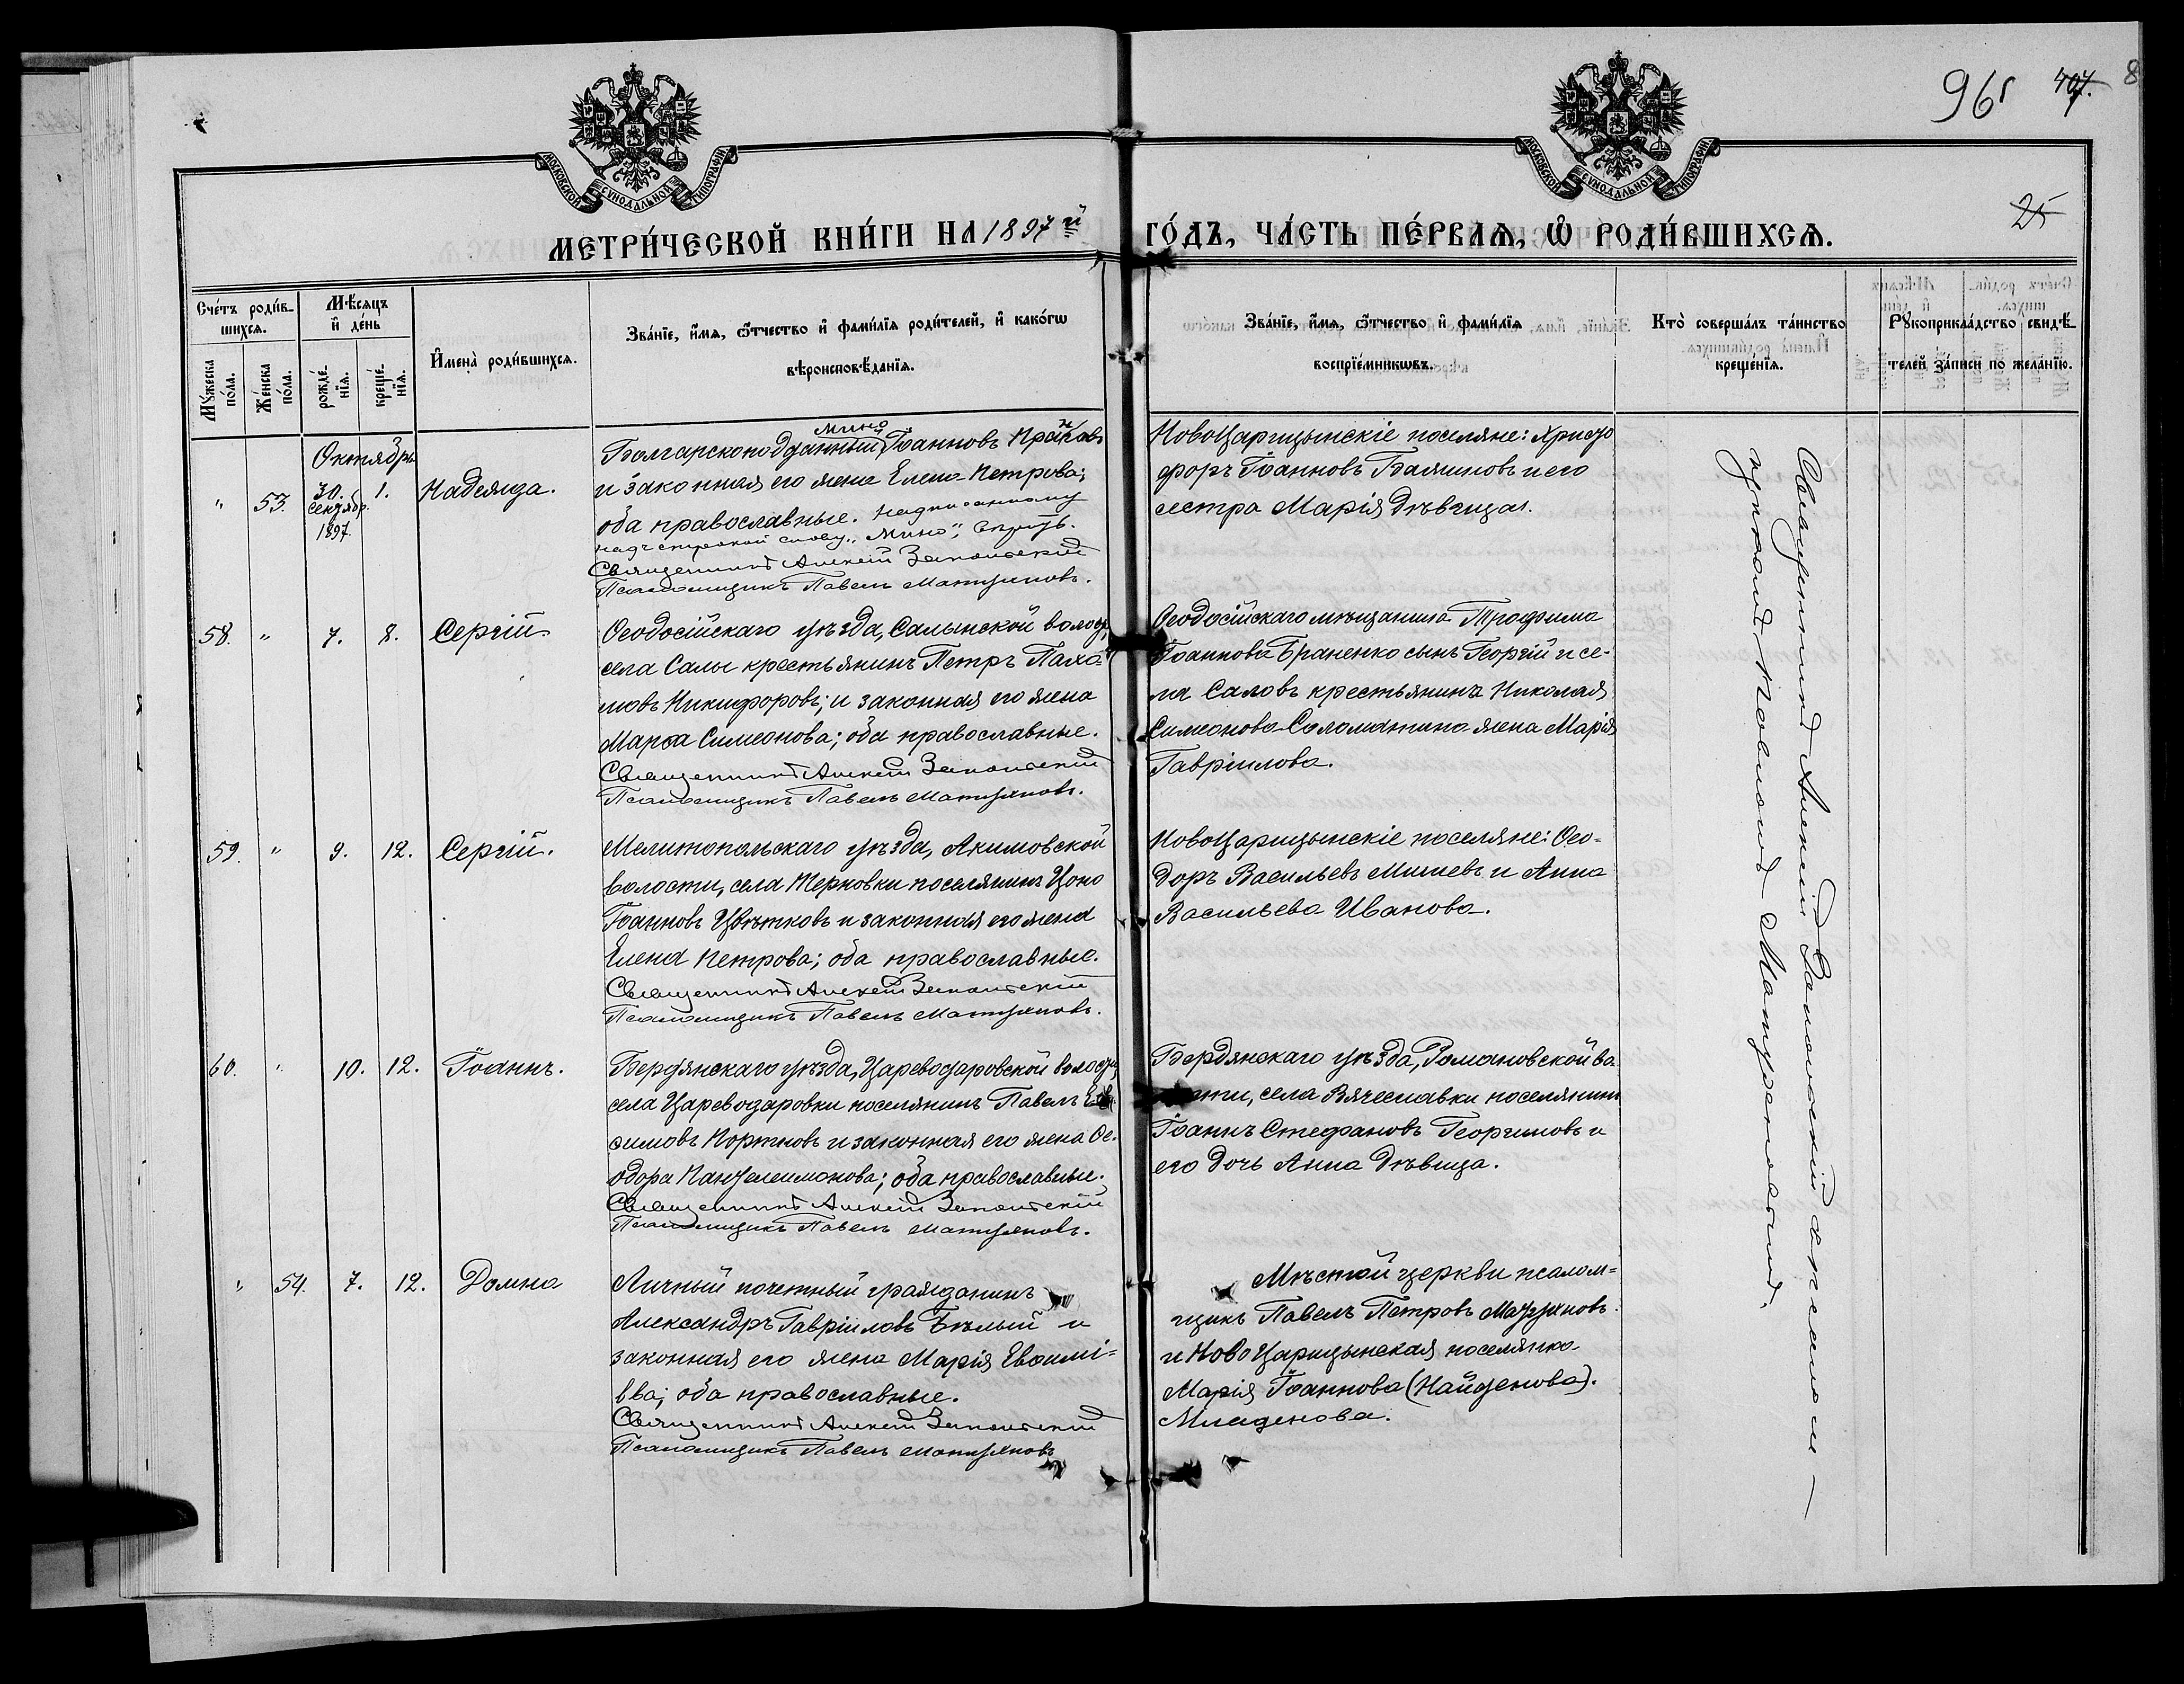 961 407. 8
25
МОСКОВСКОЙ СѴНОДАЛЬНОЙ ТИПОГРАФІИ
МОСКОВСКОЙ СѴНОДАЛЬНОЙ ТИПОГРАФІИ
МЕТРИ́ЧЕСКОЙ КНИ́ГИ НА 1897й ГО́ДЪ, ЧА́СТЬ ПЕ́РВАѦ, Ѡ҆ РОДИ́ВШИХСѦ.
Сче́тъ роди́вшихсѧ.
Мꙋ́жеска по́ла.
Же́нска по́ла.
Мѣ́сяцъ и҆ день
рожде́нїѧ.
креще́нїѧ.
И҆мена̀ роди́вшихсѧ.
Зва́нїе, и҆́мѧ, ѻ҆́тчество и҆ фами́лїѧ роди́телей, и҆ како́гѡ
вѣроисповѣ́данїѧ.
Зва́нїе, и҆́мѧ, ѻ҆́тчество и҆ фами́лїѧ
воспрїе́мникѡвъ.
Кто̀ соверша́лъ та́инство
креще́нїѧ.
Рꙋкоприкла́дство свидѣ́
телей за́писи по жела́нїю.
Октябрь
" 53. 30. сентябр. 1897. 1. Надежда.
Мино
Болгарскоподданный Іоанновъ
и законная его жена Елена Петрова;
оба православные. Надписанному
надъ строкой слову „Мино" вѣрить.
Священникъ Алексій Запольскій
Псаломщикъ Павелъ Матуяновъ.
НовоЦарицынскіе поселяне: Христо
форъ Іоанновъ и его
сестра Марія дѣвица.
58. " 7. 8. Сергій
Ѳеодосійскаго уѣзда, Салынской волост.,
села Салы крестьянинъ Петръ Пахо-
мовъ Никифоровъ; и законная его жена
Марѳа Симеонова; оба православные.
Священникъ Алексій Запольскій
Псаломщикъ Павелъ Матуяновъ.
Ѳеодосійскаго мѣщанина Трофима
Іоаннова Браненко сынъ Георгій и се-
ла Саловъ крестьянина Николая
Симеонова Соломатина жена Марія
Гавріилова.
59. " 9. 12. Сергій.
Мелитопольскаго уѣзда, Акимовской
волости, села Терновки поселянинъ Цоно
Іоанновъ Цвѣтковъ и законная его жена
Елена Петрова; оба православные.
Священникъ Алексій Запольскій
Псаломщикъ Павелъ Матуяновъ.
НовоЦарицынскіе поселяне: Ѳео-
доръ Васильевъ Мишевъ и Анна
Васильева Иванова.
60. " 10. 12. Іоаннъ.
Бердянскаго уѣзда, Цареводаровской волости,
села Цареводаровки поселянинъ Павелъ Ев
ѳимовъ Портновъ и законная его жена Ѳе-
одора Пантелеимонова; оба православные.
Священникъ Алексій Запольскій
Псаломщикъ Павелъ Матуяновъ.
Бердянскаго уѣзда, Романовской во-
сти, села Вячеславки поселянинъ
Іоаннъ Стефановъ Георгиновъ и
его дочь Анна дѣвица.
" 54. 7. 12. Домна
Личный почетный гражданинъ
Александръ Гавріиловъ Бѣлый и
законная его жена Марія Евѳимі=
ева; оба православные.
Священникъ Алексій Запольскій
Псаломщикъ Павелъ Матуяновъ
Мѣстной церкви псалом=
щикъ Павелъ Петровъ Матуяновъ
и НовоЦарицынская поселянка
Марія Іоаннова (Найденова).
Младенова.
Священникъ Алексій Запольскій съ псалом-
щикомъ Павломъ Матуяновымъ.